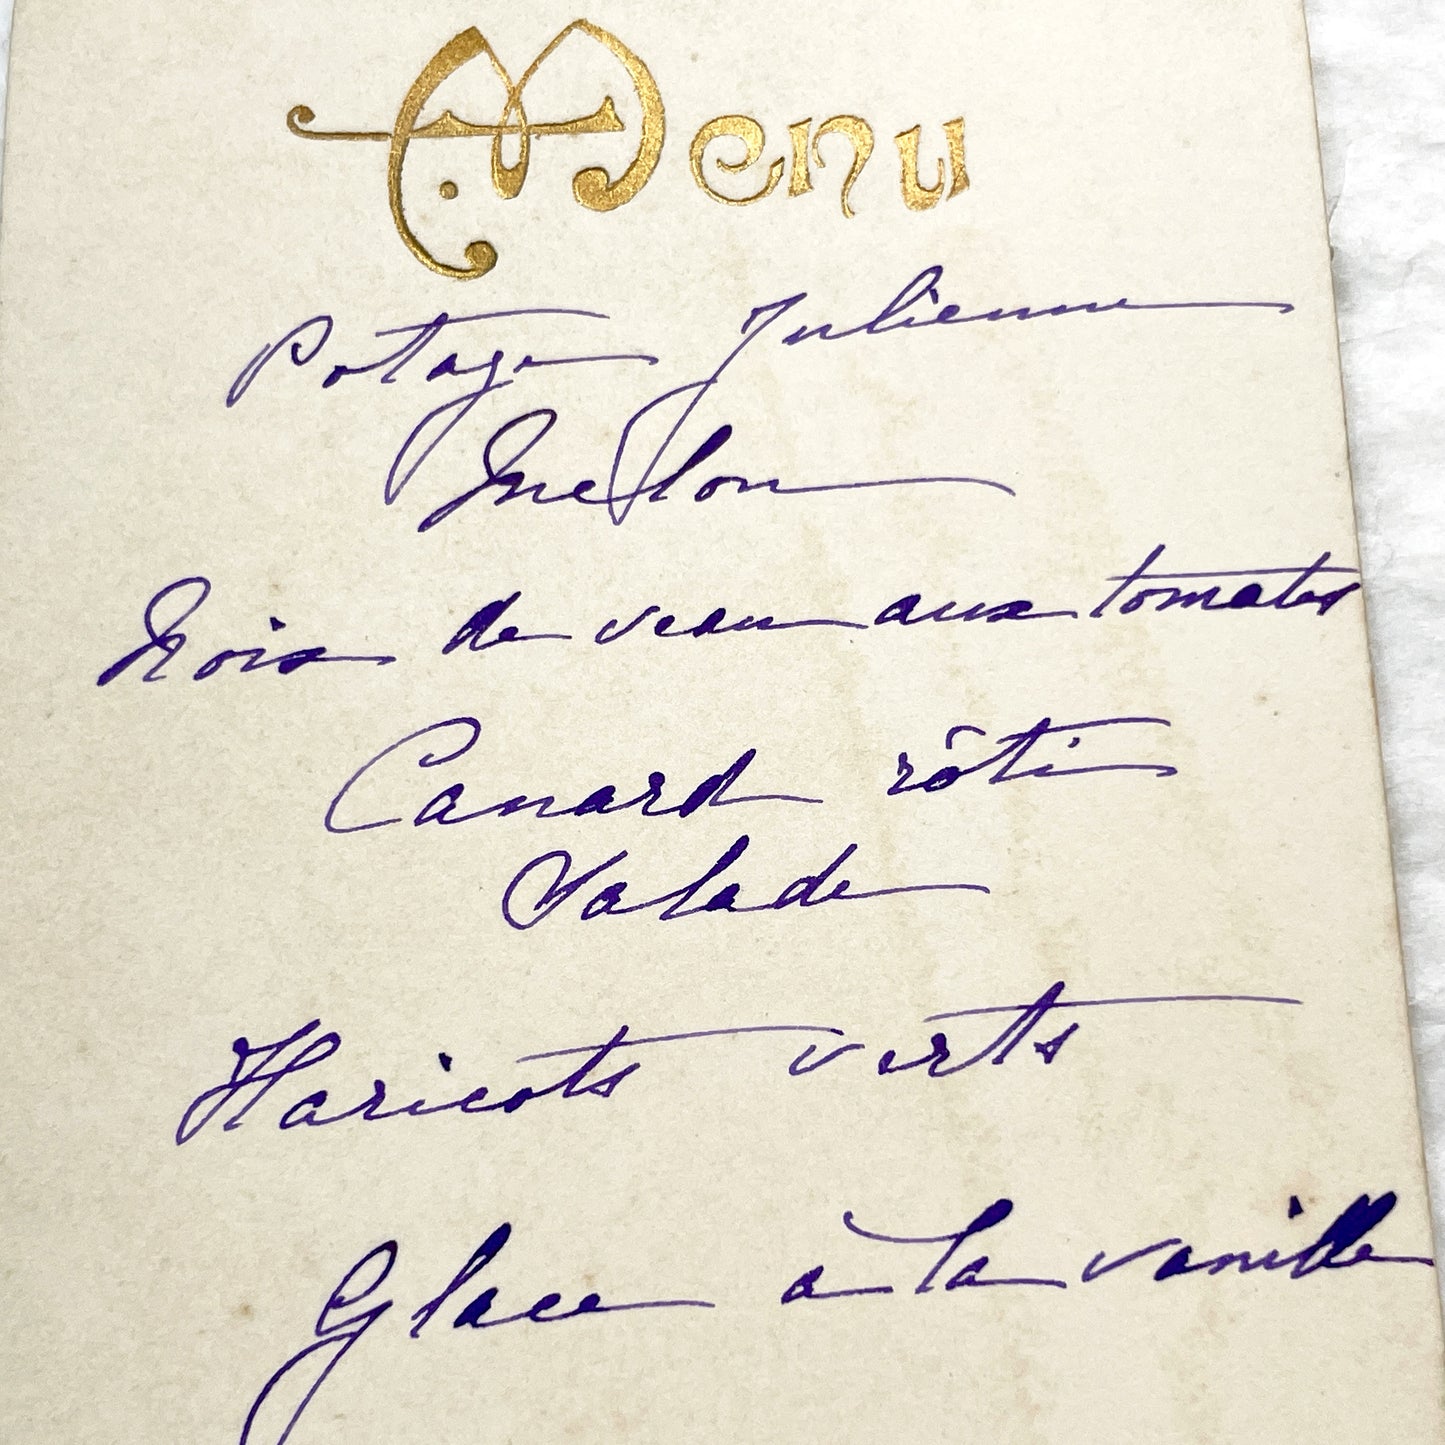 Menu
Potage Julienne
Melon
Noix de veau aux tomates
Canard rôti
Salade
Haricots verts
Glace à la vanille